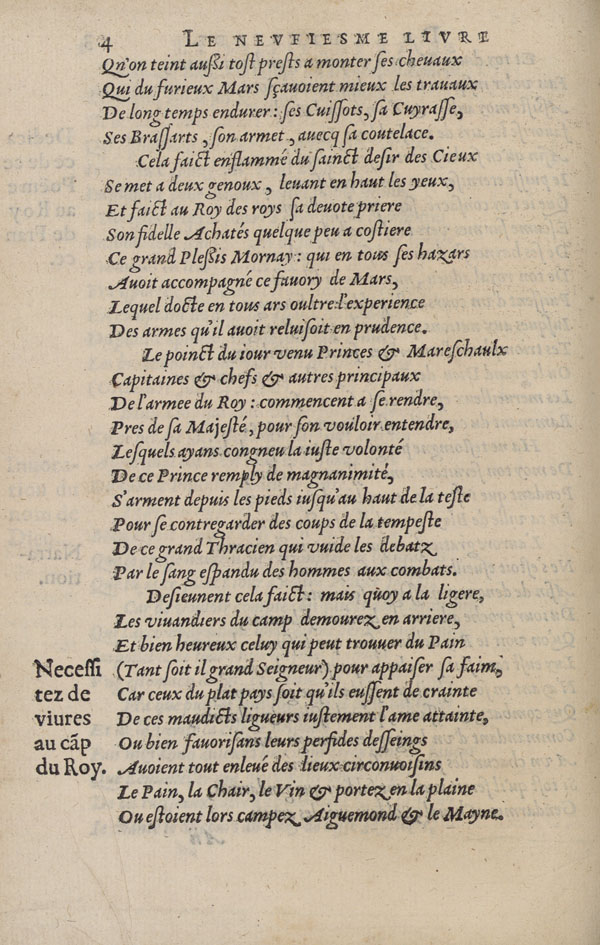 4 LE NEVFIESME LIVRE
Qu'on teint aussi tost prests a monter ses cheuaux
Qui du furieux Mars sçauoient mieux les trauaux
De long temps endurer: ses Cuissots, sa Cuyrasse,
Ses Brassarts, son armet, auecq sa coutelace.
Cela faict enflammé du sainct desir des Cieux
Se met a deux genoux, leuant en haut les yeux,
Et faict au Roy des roys sa deuote priere
Son fidelle Achatés quelque peu a costiere
Ce grand Plessis Mornay: qui en tous ses hazars
Auoit accompagné ce fauory de Mars,
Lequel docte en tous ars oultre l'experience
Des armes qu'il auoit reluisoit en prudence.
Le poinct du iour venu Princes & Mareschaulx
Capitaines & chefs & autres principaux
De l'armee du Roy: commencent a se rendre,
Pres de sa Majesté, pour son vouloir entendre,
Lesquels ayans congneu la iuste volonté
De ce Prince remply de magnanimité,
S'arment depuis les pieds iusqu'au haut de la teste
Pour se contregarder des coups de la tempeste
De ce grand Thracien qui vuide les debatz
Par le sang espandu des hommes aux combats.
Desieunent cela faict: mais quoy a la ligere,
Les viuandiers du camp demourez en arriere,
Et bien heureux celuy qui peut trouuer du Pain
(Tant soit il grand Seigneur) pour appaiser sa faim,
Car ceux du plat pays soit qu'ils eussent de crainte
De ces maudicts ligueurs iustement l'ame attainte,
Ou bien fauorisans leurs perfides desseings
Auoient tout enleué des lieux circonuoisins
Le Pain, la Chair, le Vin & portez en la plaine
Ou estoient lors campez Aiguemond & le Mayne.
Necessi
tez de
viures
au cãp
du Roy.